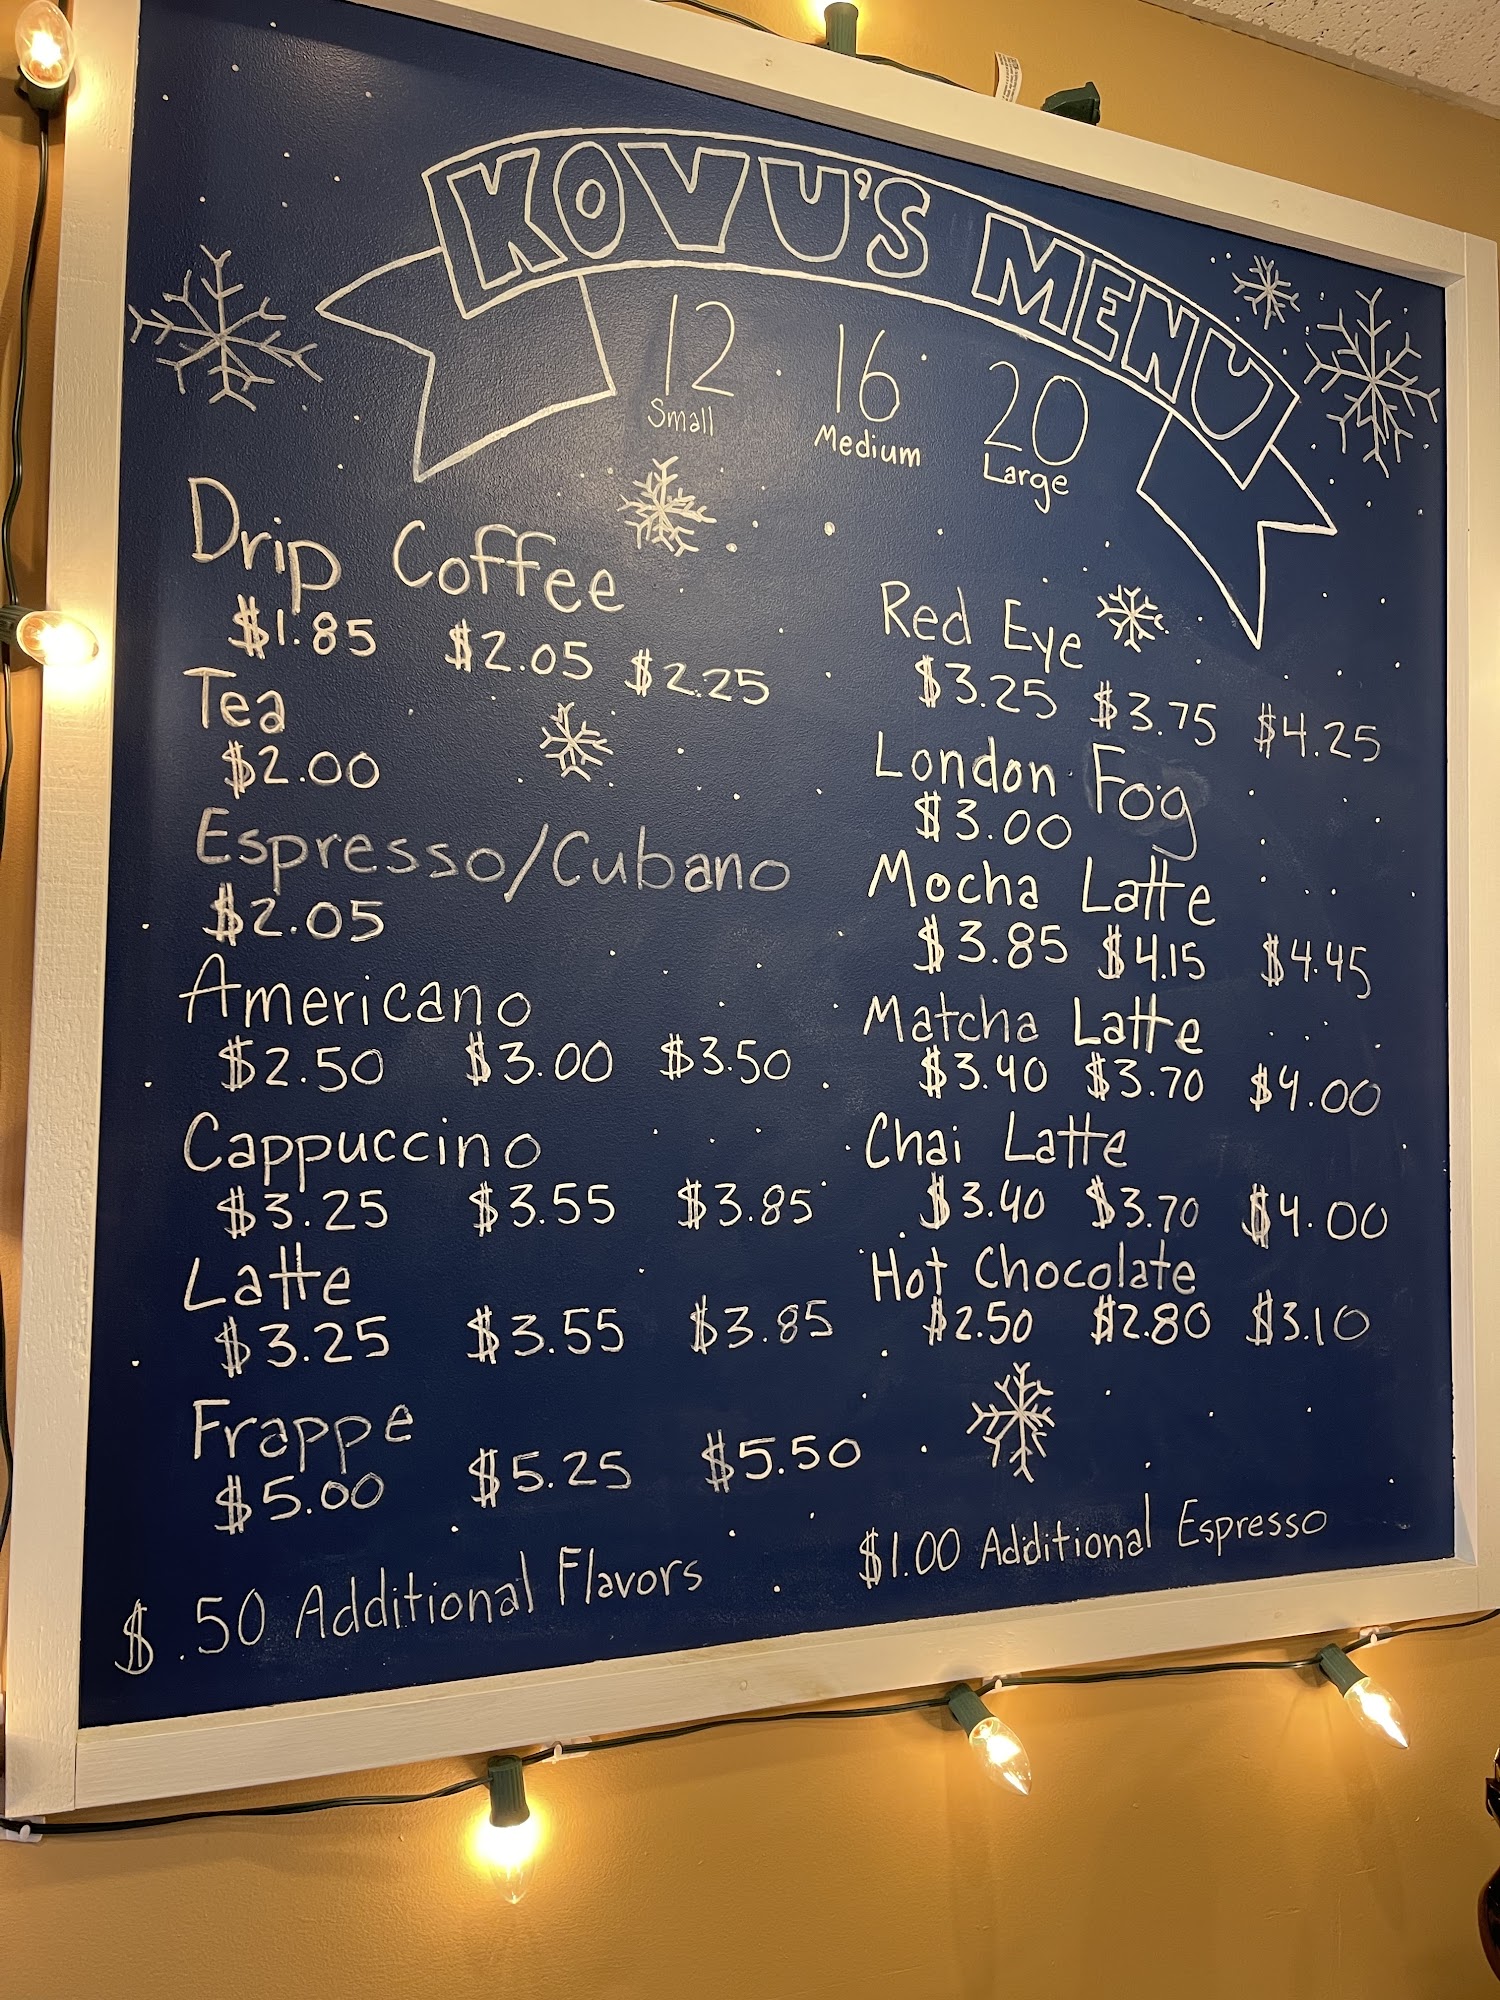 KOVU'S MENU
12 16 20
Small Medium Large
Drip Coffee
$1.85 $2.05 $2.25
Tea
$2.00
Espresso/Cubano
$2.05
Americano
$2.50 $3.00 $3.50
Cappuccino
$3.25 $3.55 $3.85
Latte
$3.25 $3.55 $3.85
Frappe
$5.00 $5.25 $5.50
Red Eye
$3.25 $3.75 $4.25
London Fog
$3.00
Mocha Latte
$3.85 $4.15 $4.45
Matcha Latte
$3.40 $3.70 $4.00
Chai Latte
$3.40 $3.70 $4.00
Hot Chocolate
$2.50 $2.80 $3.10
$.50 Additional Flavors
$1.00 Additional Espresso